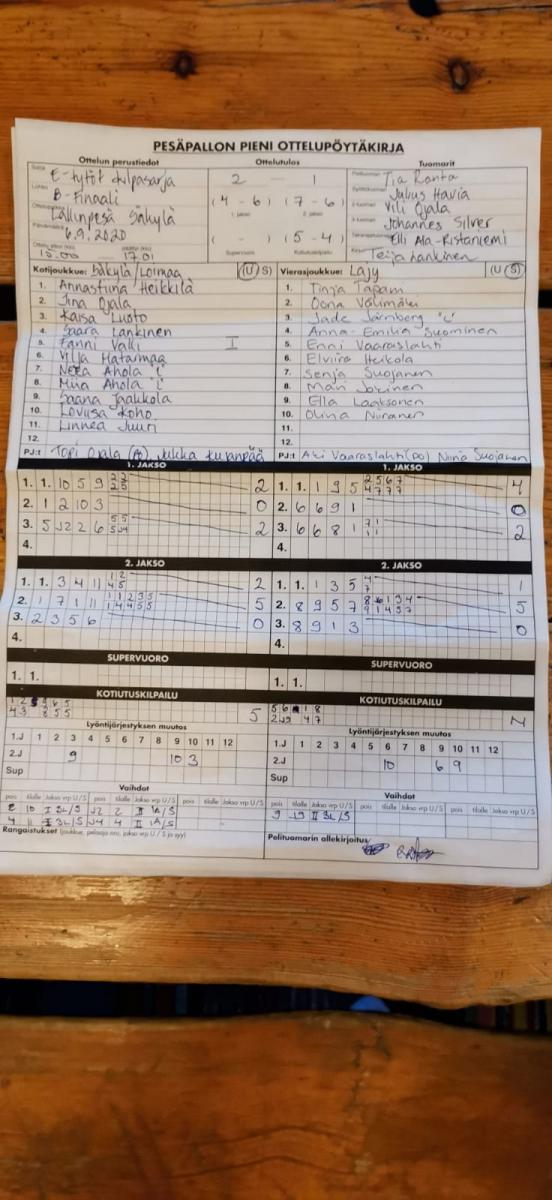 PESÄPALLON PIENI OTTELUPÖYTÄKIRJA
Ottelun perustiedot Ottelutulos Tuomarit
Sarja E-tytöt kilpasarja 2 - 1 Pelituomari Tia Ranta
Lohko B-Finaali (4 - 6) (7 - 6) Syöttötuomari Julius Havia
Lännenpesä Säkylä 1. jakso 2. jakso 2-tuomari Vili Ojala
Päivämäärä 6.9.2020 3-tuomari Johannes Silver
( - ) (5 - 4) Takarajatuomari Elli Ala-Ristaniemi
15.00 17.01 Supervuoro Kotiutuskilpailu Kirjuri Teija Lankinen
Kotijoukkue: Säkylä/Loimaa (U S) Vierasjoukkue: LaJy (U S)
1. Annastiina Heikkilä 1. Tinja Tapani
2. Jina Ojala 2. Oona Välimäki
3. Kaisa Luoto 3. Jade Järnberg "L"
4. Saara Lankinen 4. Anna-Emilia Suominen
5. Fanni Valli I 5. Enni Vaaraslahti
6. Vilja Hatarmaa 6. Elviira Heikola
7. Neea Ahola "L" 7. Senja Suojanen
8. Miia Ahola "L" 8. Mari Jokinen
9. Saana Jaakkola 9. Ella Laaksonen
10. Loviisa Koho 10. Olivia Niiranen
11. Linnea Juuri 11.
12. 12.
PJ:t Topi Ojala (A) Jukka PJ:t Aki Vaaraslahti (PO) Niina Suojanen
1. JAKSO 1. JAKSO
1. 1. 10 5 9 2 1. 1. 1 9 5 2 5 6 7 4
4 7 7 7
2. 1 2 10 3 0 2. 6 6 9 1 0
3. 5 J2 2 6 5 5 2 3. 6 6 8 1 7 1 2
5 J4 1 1
4. 4.
2. JAKSO 2. JAKSO
1. 1. 3 4 11 1 2 2 1. 1. 1 3 5 4 1
4 5 7
2. 1 7 1 11 1 1 2 3 5 5 2. 8 9 5 7 8 6 1 3 4 5
1 4 4 5 5 9 1 4 5 7
3. 2 3 5 6 0 3. 8 9 1 3 0
4. 4.
SUPERVUORO SUPERVUORO
1. 1. 1. 1.
KOTIUTUSKILPAILU KOTIUTUSKILPAILU
5
Lyöntijärjestyksen muutos Lyöntijärjestyksen muutos
1.J 1 2 3 4 5 6 7 8 9 10 11 12 1.J 1 2 3 4 5 6 7 8 9 10 11 12
2.J 9 10 3 2.J 10 6 9
Sup Sup
Vaihdot Vaihdot
pois tilalle Jakso vrp U/S pois tilalle Jakso vrp U/S pois tilalle Jakso vrp U/S pois tilalle Jakso vrp U/S
10 I 3L/S J2 2 II 9 J3 II 3L/S
4 11 I 3L/S J4 4 II 1A/S
Rangaistukset (joukkue, pelaaja nro, jakso vrp U / S ja syy) Pelituomarin allekirjoitus